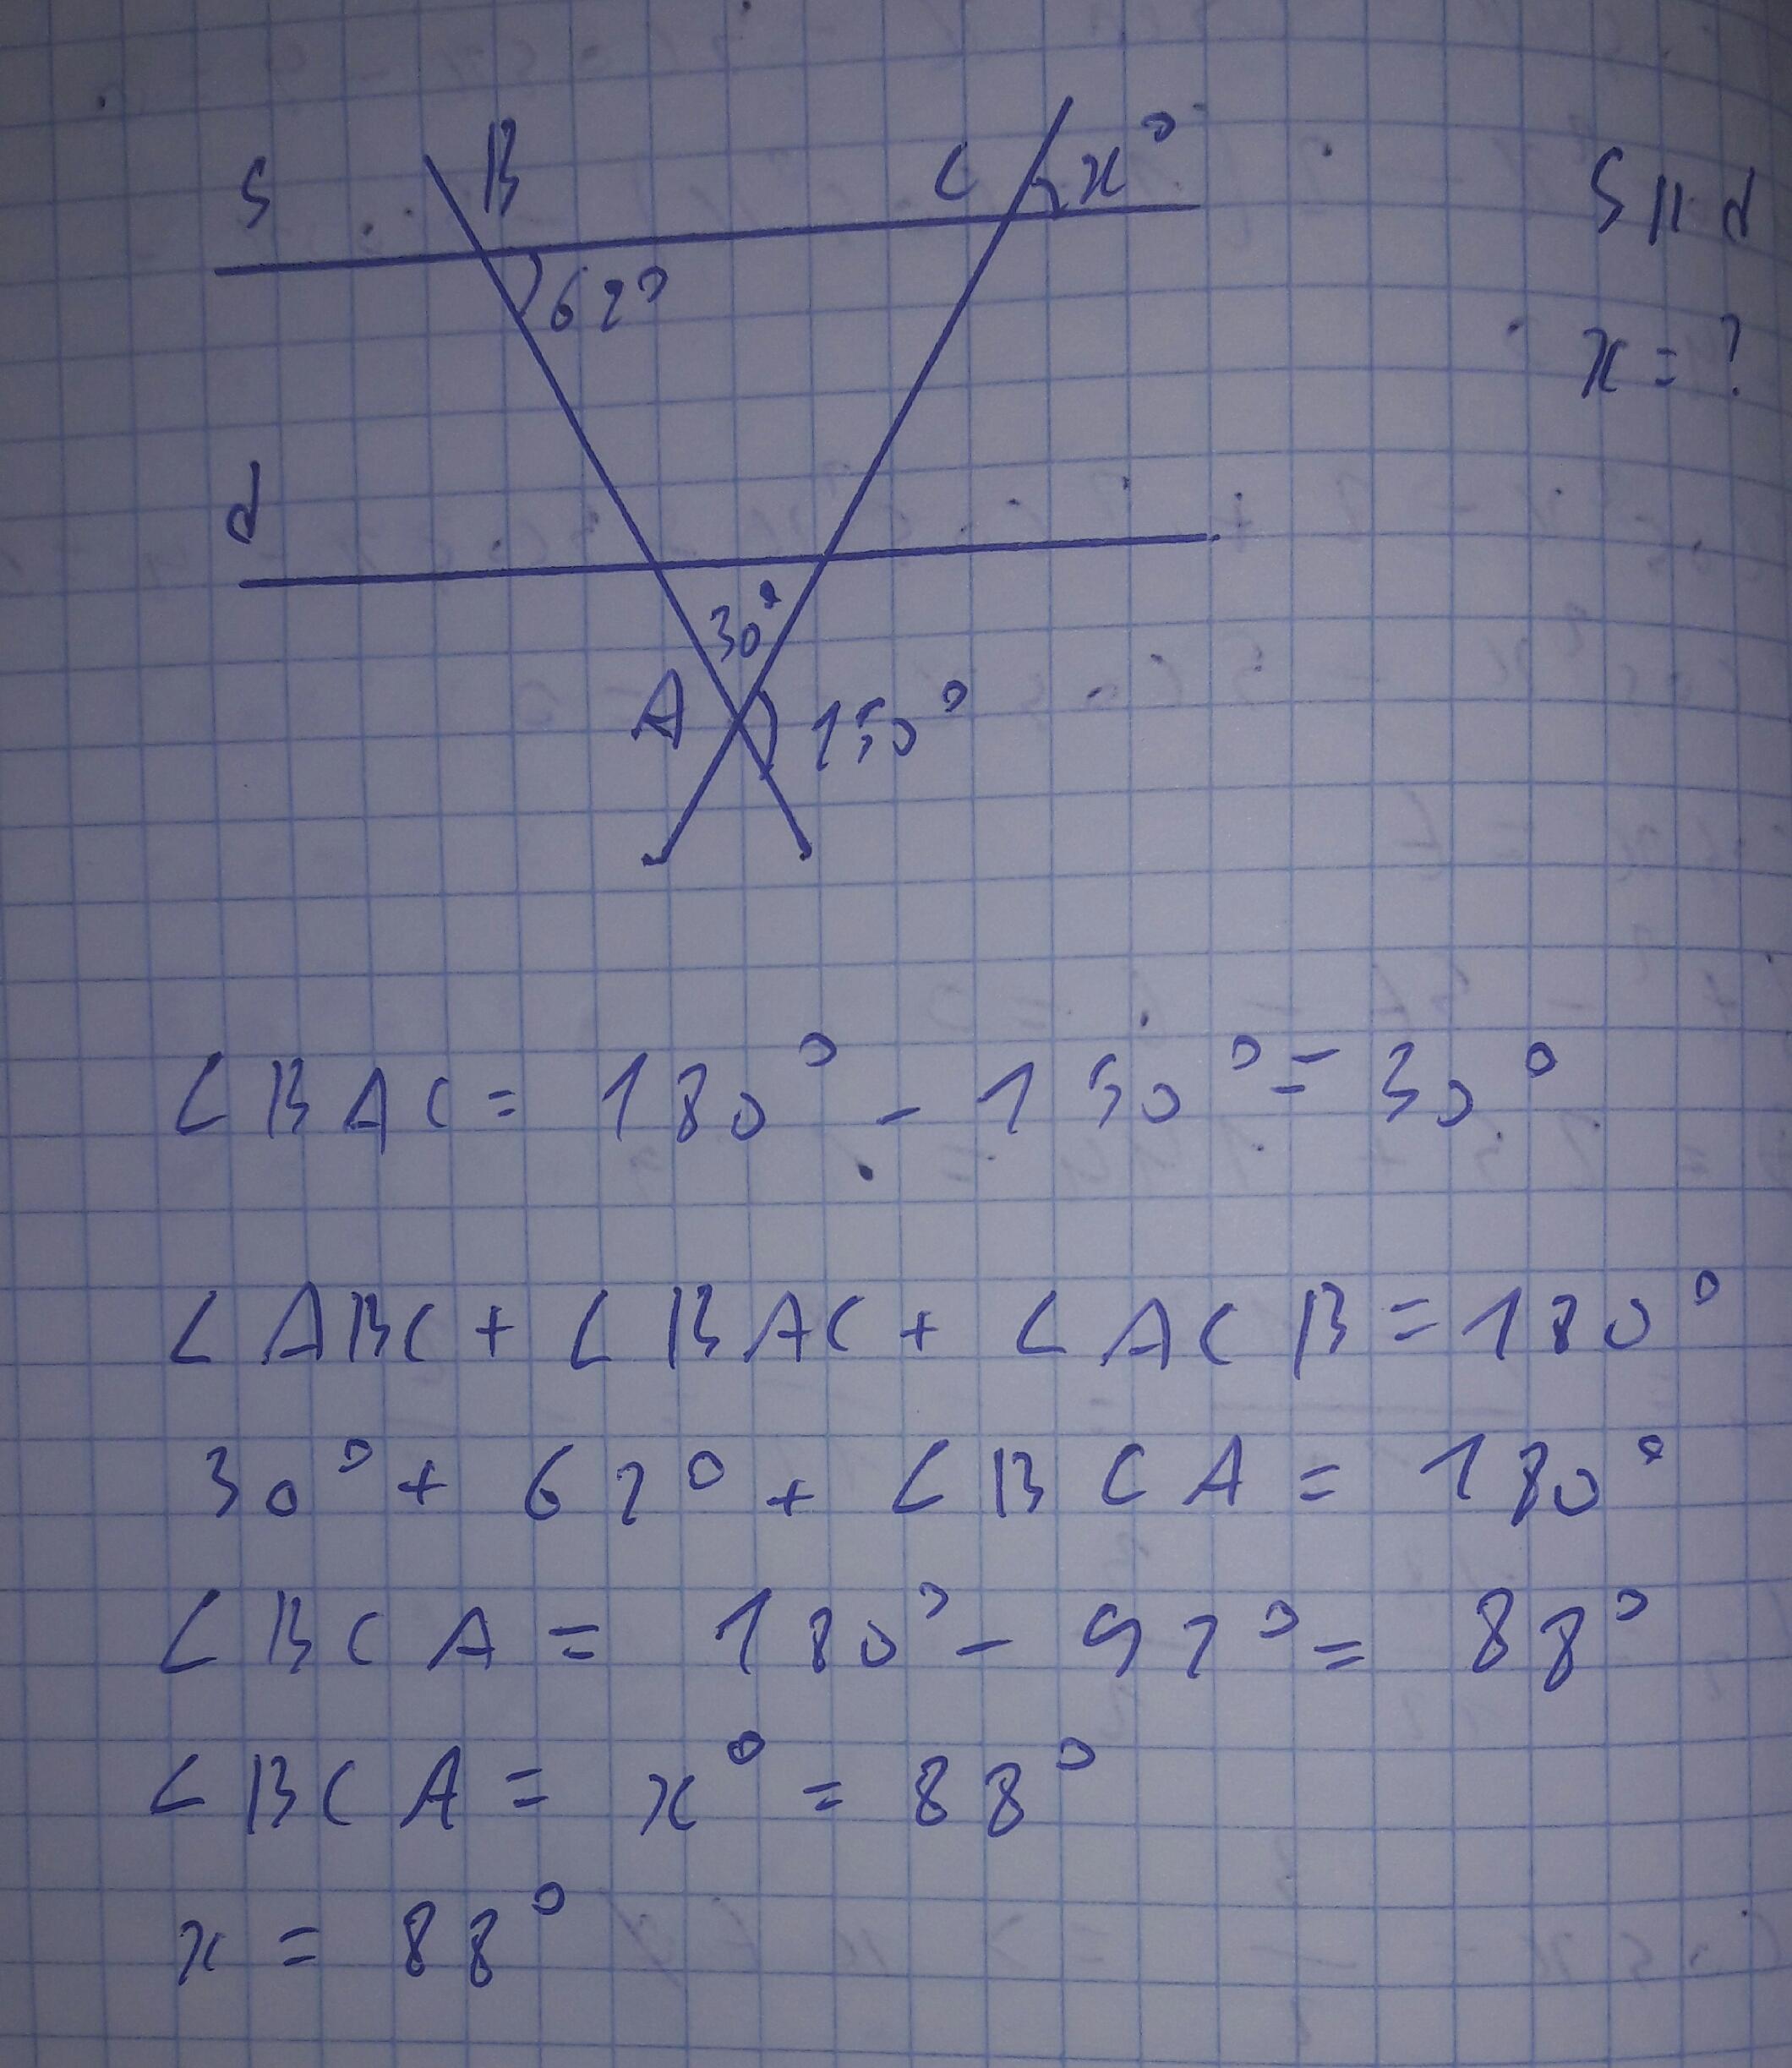 S B C x° S || d
62°
x = ?
d
30°
A 150°
∠BAC = 180° - 150° = 30°
∠ABC + ∠BAC + ∠ACB = 180°
30° + 62° + ∠BCA = 180°
∠BCA = 180° - 92° = 88°
∠BCA = x° = 88°
x = 88°